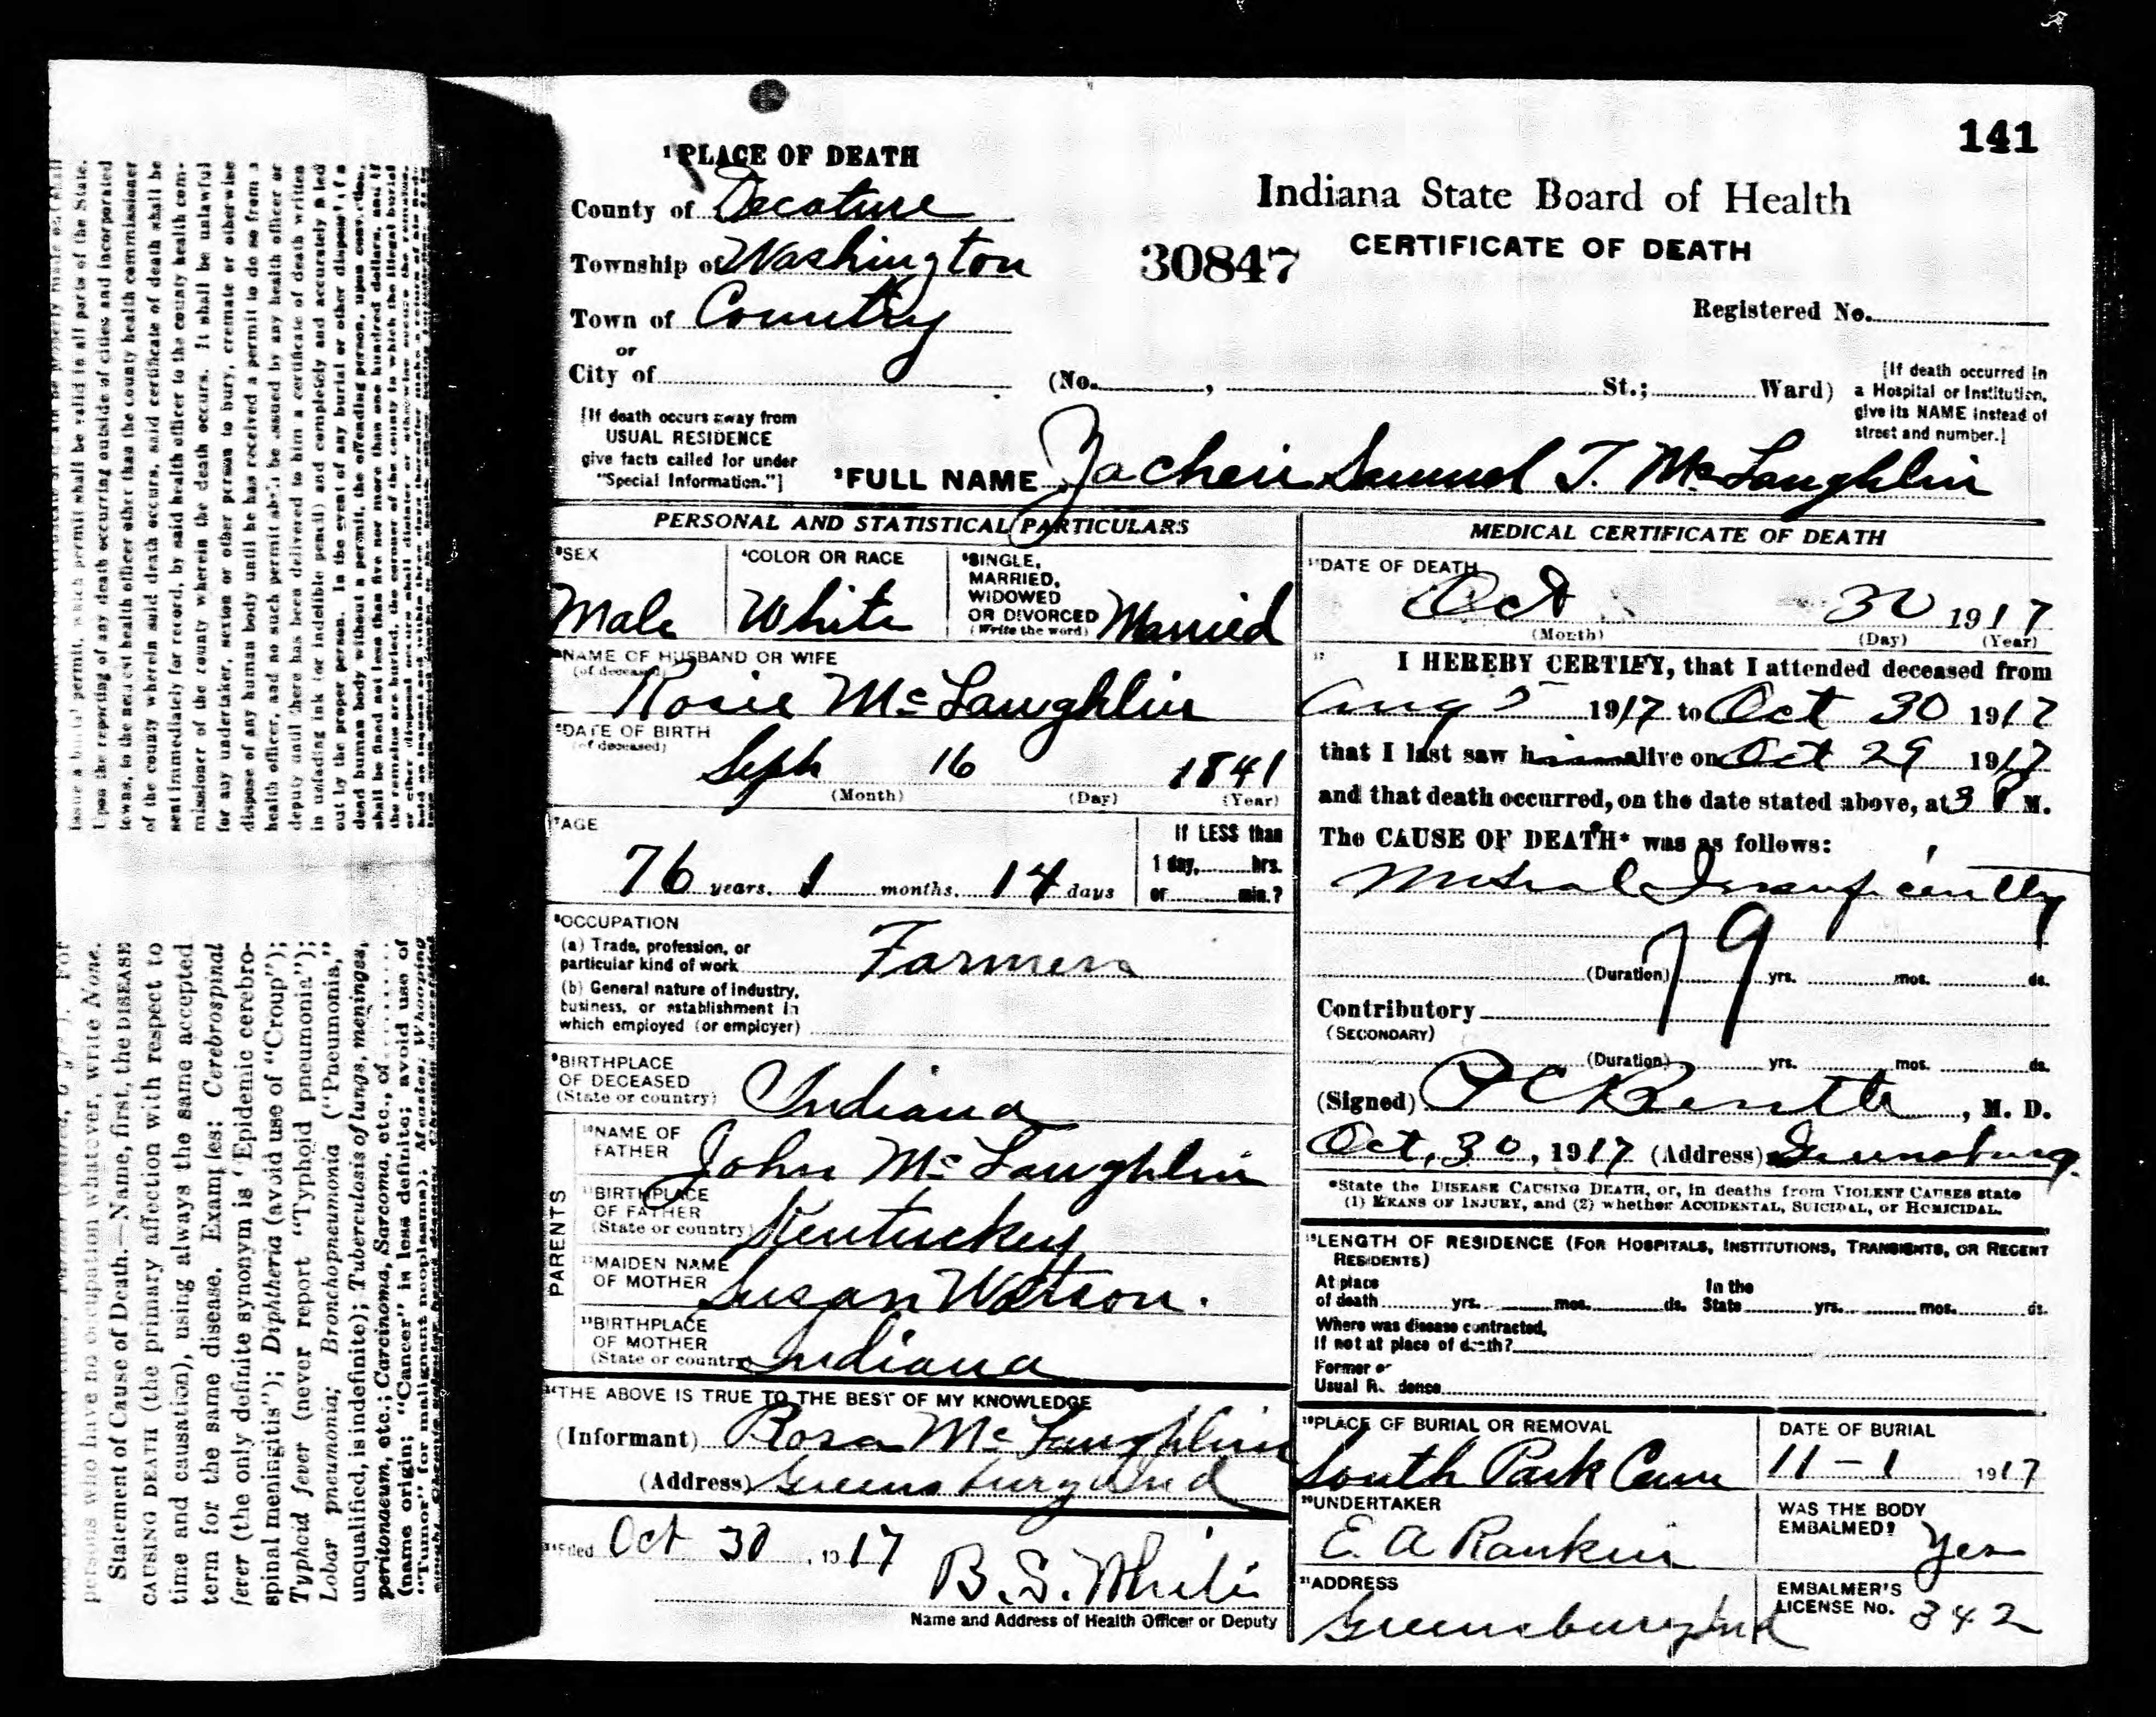 141
¹PLACE OF DEATH
County of Decature
Township of Washington
Town of Country
or
City of
Indiana State Board of Health
CERTIFICATE OF DEATH
30847
Registered No.
(No. , St.; Ward)
[If death occurred in
a Hospital or Institution,
give its NAME instead of
street and number.]
[If death occurs away from
USUAL RESIDENCE
give facts called for under
"Special Information."]
²FULL NAME Samuel T. McLaughlin
PERSONAL AND STATISTICAL PARTICULARS
³SEX
Male
⁴COLOR OR RACE
White
⁵SINGLE,
MARRIED,
WIDOWED
OR DIVORCED
(Write the word) Married
NAME OF HUSBAND OR WIFE
(of deceased)
Rosie McLaughlin
⁶DATE OF BIRTH
(of deceased)
Sept 16 1841
(Month) (Day) (Year)
⁷AGE
76 years. 1 months. 14 days
If LESS than
1 day, hrs.
or min.?
⁸OCCUPATION
(a) Trade, profession, or
particular kind of work Farmer
(b) General nature of industry,
business, or establishment in
which employed (or employer)
⁹BIRTHPLACE
OF DECEASED
(State or country) Indiana
PARENTS
¹⁰NAME OF
FATHER John McLaughlin
¹¹BIRTHPLACE
OF FATHER
(State or country) Kentuckey
¹²MAIDEN NAME
OF MOTHER Susan Watson.
¹³BIRTHPLACE
OF MOTHER
(State or country) Indiana
¹⁴THE ABOVE IS TRUE TO THE BEST OF MY KNOWLEDGE
(Informant) Rosa McLaughlin
(Address) Greensburg Ind
¹⁵Filed Oct 30, 1917
Name and Address of Health Officer or Deputy
MEDICAL CERTIFICATE OF DEATH
¹⁶DATE OF DEATH
Oct 30 1917
(Month) (Day) (Year)
¹⁷ I HEREBY CERTIFY, that I attended deceased from
Aug 1917 to Oct 30 1917
that I last saw him alive on Oct 29 1917
and that death occurred, on the date stated above, at 3 P M.
The CAUSE OF DEATH* was as follows:
79
(Duration) yrs. mos. ds.
Contributory
(SECONDARY)
(Duration) yrs. mos. ds.
(Signed) , M. D.
Oct, 30, 1917 (Address) Greensburg.
*State the DISEASE CAUSING DEATH, or, in deaths from VIOLENT CAUSES state
(1) MEANS OF INJURY, and (2) whether ACCIDENTAL, SUICIDAL, or HOMICIDAL.
¹⁸LENGTH OF RESIDENCE (FOR HOSPITALS, INSTITUTIONS, TRANSIENTS, OR RECENT
RESIDENTS)
At place
of death yrs. mos. ds.
In the
State yrs. mos. ds.
Where was disease contracted,
if not at place of death?
Former or
Usual Residence
¹⁹PLACE OF BURIAL OR REMOVAL
South Park Cem
DATE OF BURIAL
11-1 1917
²⁰UNDERTAKER
E. A Rankin
WAS THE BODY
EMBALMED? Yes
²¹ADDRESS
Greensburg Ind
EMBALMER'S
LICENSE No. 342
issue a burial permit, which permit shall be valid in all parts of the State.
Upon the reporting of any death occurring outside of cities and incorporated
towns, to the nearest health officer other than the county health commissioner
of the county wherein said death occurs, said certificate of death shall be
sent immediately for record, by said health officer to the county health com-
missioner of the county wherein the death occurs. It shall be unlawful
for any undertaker, sexton or other person to bury, cremate or otherwise
dispose of any human body until he has received a permit to do so from a
health officer, and no such permit shall be issued by any health officer or
deputy until there has been delivered to him a certificate of death written
in unfading ink (or indelible pencil) and completely and accurately filled
out by the proper person. In the event of any burial or other disposal of a
dead human body without a permit, the offending person, upon conviction,
shall be fined not less than five nor more than one hundred dollars, and if
persons who have no occupation whatever, write None.
Statement of Cause of Death.—Name, first, the DISEASE
CAUSING DEATH (the primary affection with respect to
time and causation), using always the same accepted
term for the same disease. Examples: Cerebrospinal
fever (the only definite synonym is "Epidemic cerebro-
spinal meningitis"); Diphtheria (avoid use of "Croup");
Typhoid fever (never report "Typhoid pneumonia");
Lobar pneumonia; Bronchopneumonia ("Pneumonia,"
unqualified, is indefinite); Tuberculosis of lungs, meninges,
peritonaeum, etc.; Carcinoma, Sarcoma, etc., of........
(name origin; "Cancer" is less definite; avoid use of
"Tumor" for malignant neoplasms); Measles; Whooping